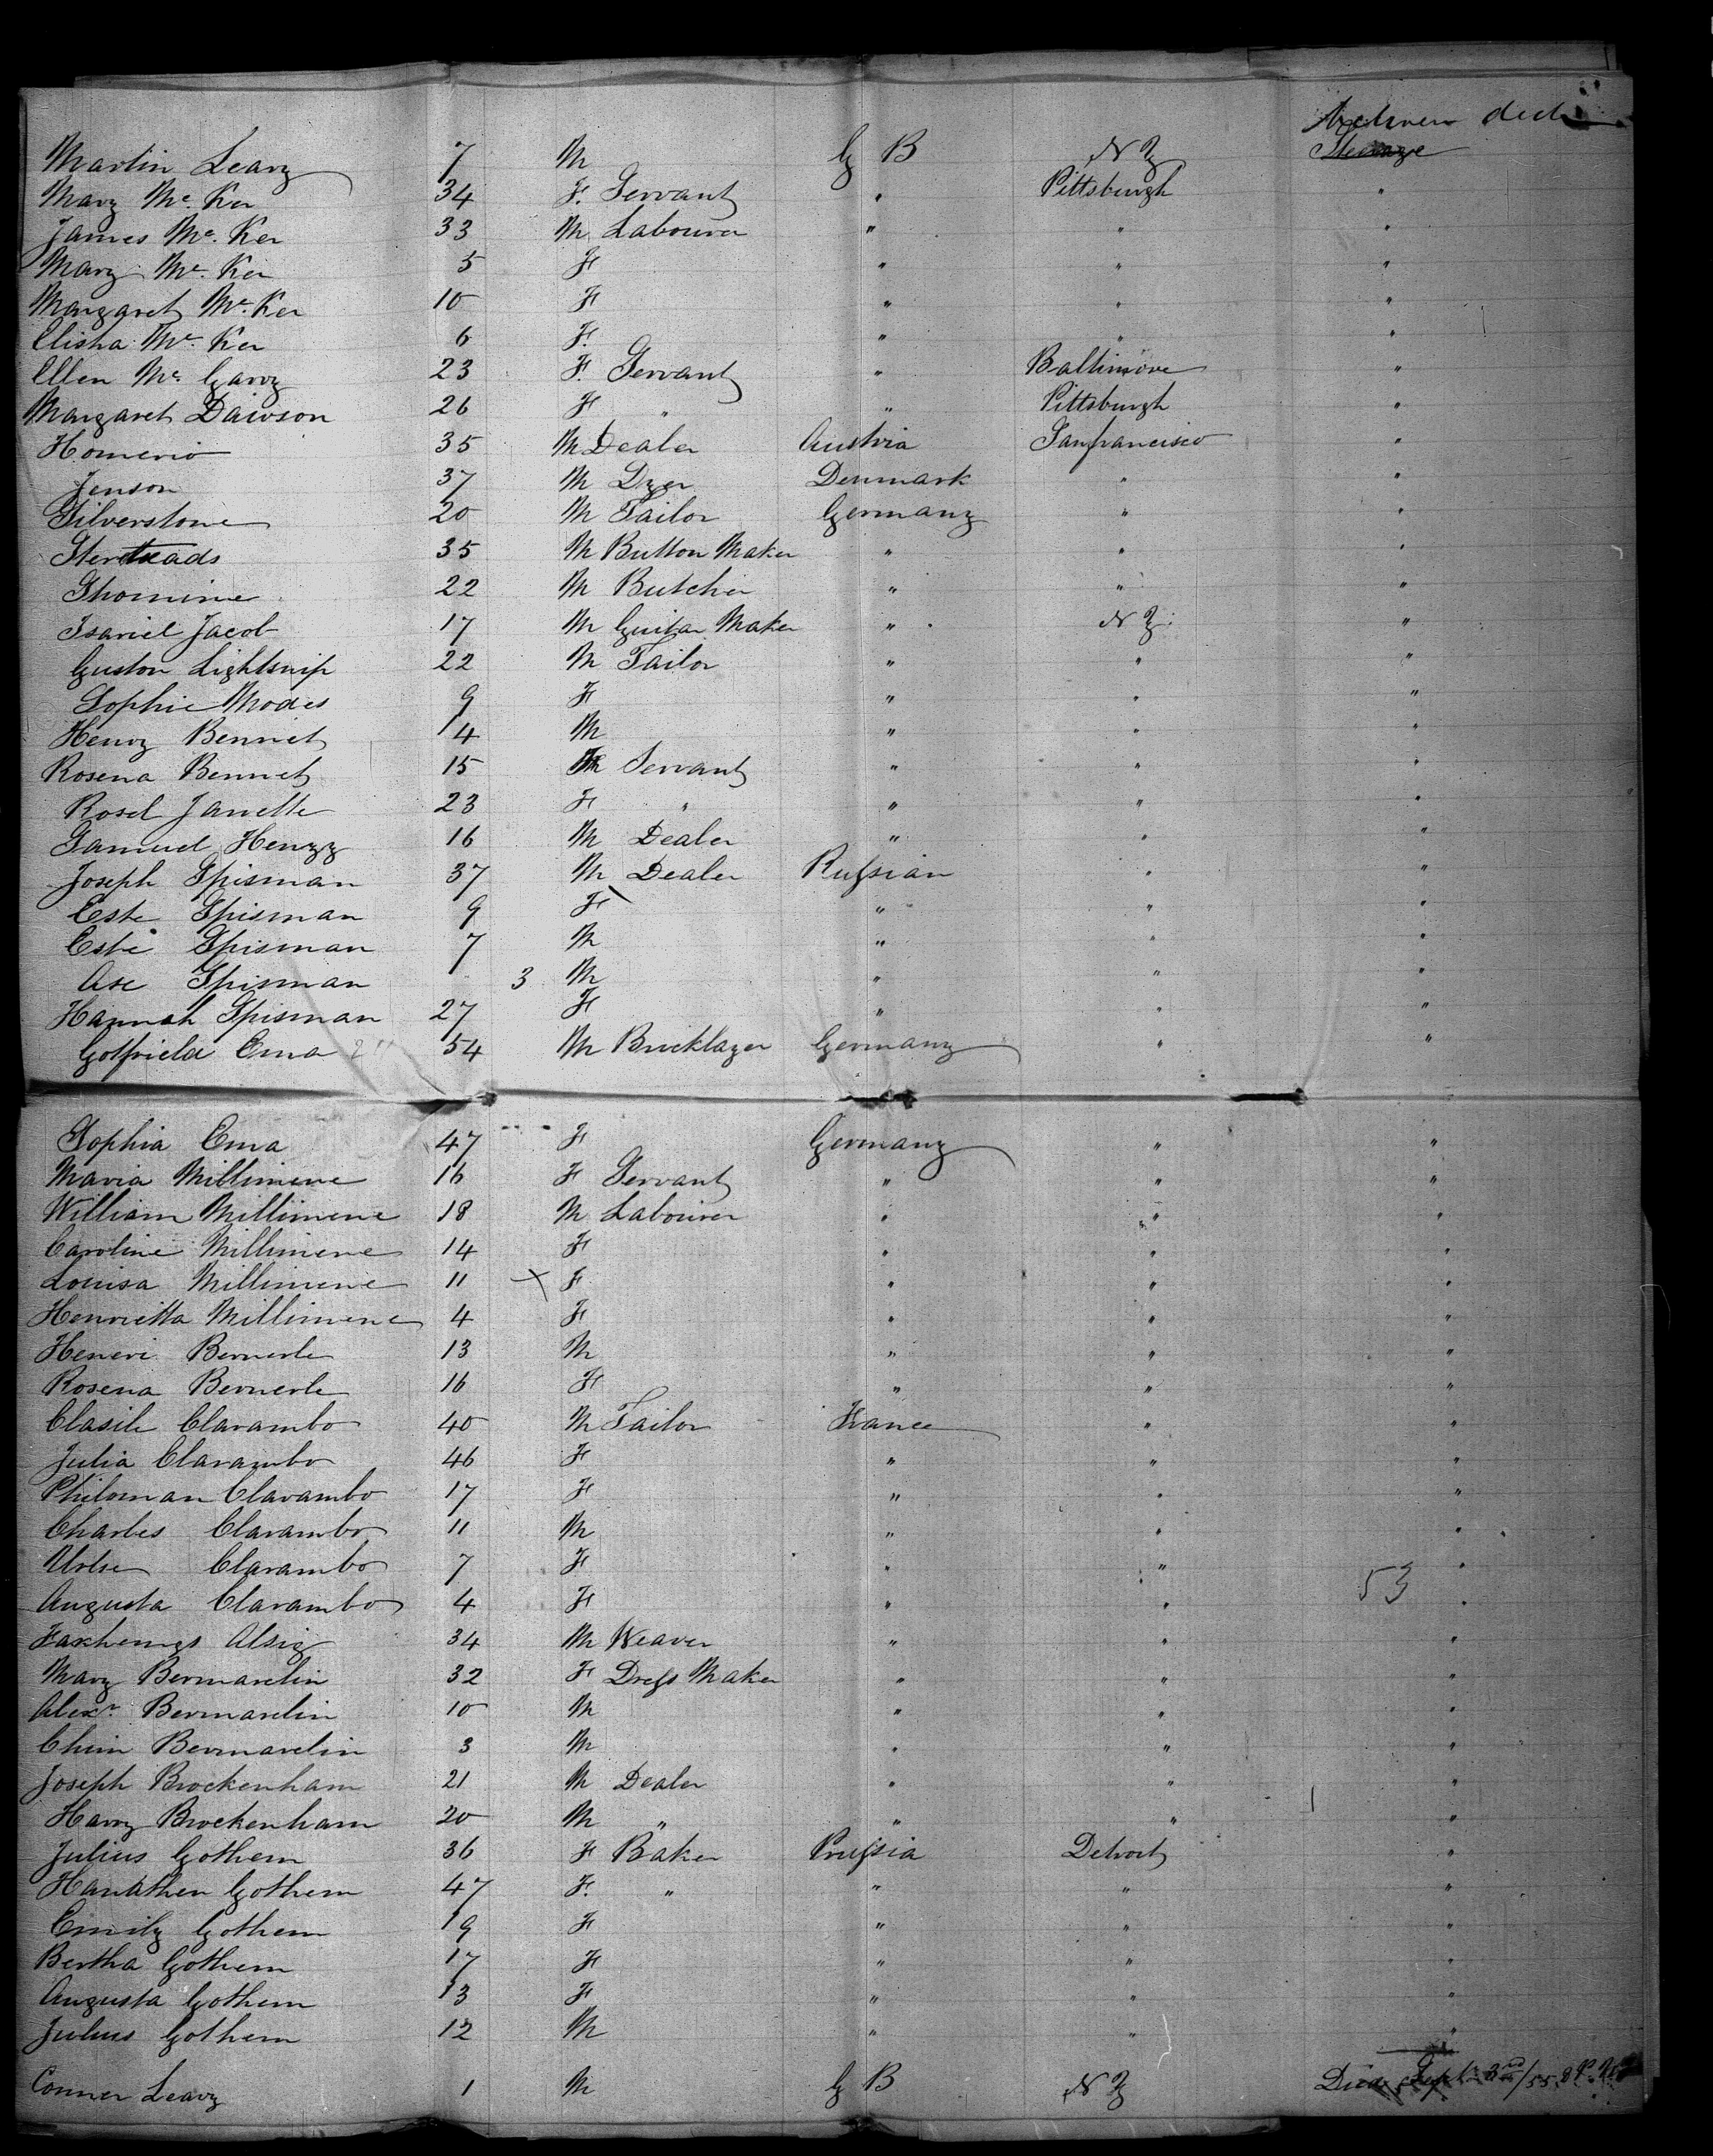 Between deck
Martin Leary 7 M G B N Y Sterage
Mary Mc. Ker 34 F. Servant " Pittsburgh "
James Mc. Ker 33 M Labourer " " "
Mary Mc. Ker 5 F " " "
Margaret Mc. Ker 10 F " " "
Elisha Mc. Ker 6 F. " " "
Ellen Mc. Garry 23 F. Servant " Baltimore "
Margaret Dawson 26 F " " Pittsburgh "
Homerio 35 M Dealer Austria Sanfrancisco "
Jenson 37 M Dyer Denmark " "
Silverstone 20 M Tailor Germany " "
35 M Button Maker " " "
Shomine 22 M Butcher " " "
Isariel Jacob 17 M Guitar Maker " N Y. "
Guston Lightsnip 22 M Tailor " " "
Sophie Modes 9 F " " "
Henry Bennet 14 M " " "
Rosena Bennet 15 Servant " " "
Rosel Janette 23 F " " " "
Samuel Henyy 16 M Dealer " " "
Joseph Spisman 37 M Dealer Russian " "
Este Spisman 9 F " " "
Este Spisman 7 M " " "
Ase Spisman 3 M " " "
Hannah Spisman 27 F " " "
Gotfrield Ema 54 M Bricklayer Germany " "
Sophia Ema 47 F Germany " "
Maria Millimene 16 F Servant " " "
William Millimene 18 M Labourer " " "
Caroline Millimene 14 F " " "
Louisa Millimene 11 x F " " "
Henrietta Millimene 4 F " " "
Heneri Bernerle 13 M " " "
Rosena Bernerle 16 F " " "
Clasile Clarambo 40 M Tailor France " "
Julia Clarambo 46 F " " "
Philoman Clarambo 17 F " " "
Charles Clarambo 11 M " " "
Clarambo 7 F " " "
53
Augusta Clarambo 4 F " " "
Alsig 34 M Weaver " " "
Mary Bermardin 32 F Dress Maker " " "
Alexr. Bermardin 10 M " " "
Chim Bermardin 3 M " " "
Joseph Brockenham 21 M Dealer " " "
Harry Brockenham 20 M " " " "
Julius Gothem 36 F Baker Prussia Detroit "
Hanathen Gothem 47 F. " " " "
Emily Gothem 19 F " " "
Bertha Gothem 17 F " " "
Augusta Gothem 13 F " " "
Julius Gothem 12 M " " "
Conner Leary 1 M G B N Y Died Sept. 3rd/55 8 P.M.